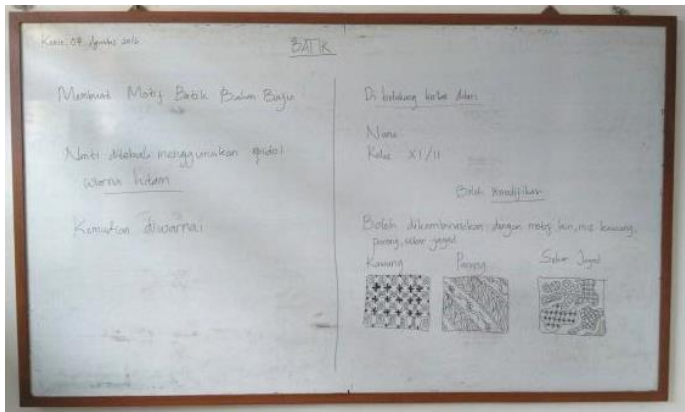 Kamis, 04 Agustus 2016
BATIK
Membuat Motif Batik Bahan Baju
Nanti ditebali menggunakan spidol
warna hitam
Kemudian diwarnai
Di belakang kertas diberi
Nama
Kelas XI/11
Boleh
Boleh dikombinasikan dengan motif lain, mis kawung,
parang, sekar jagad
Kawung Parang Sekar Jagad